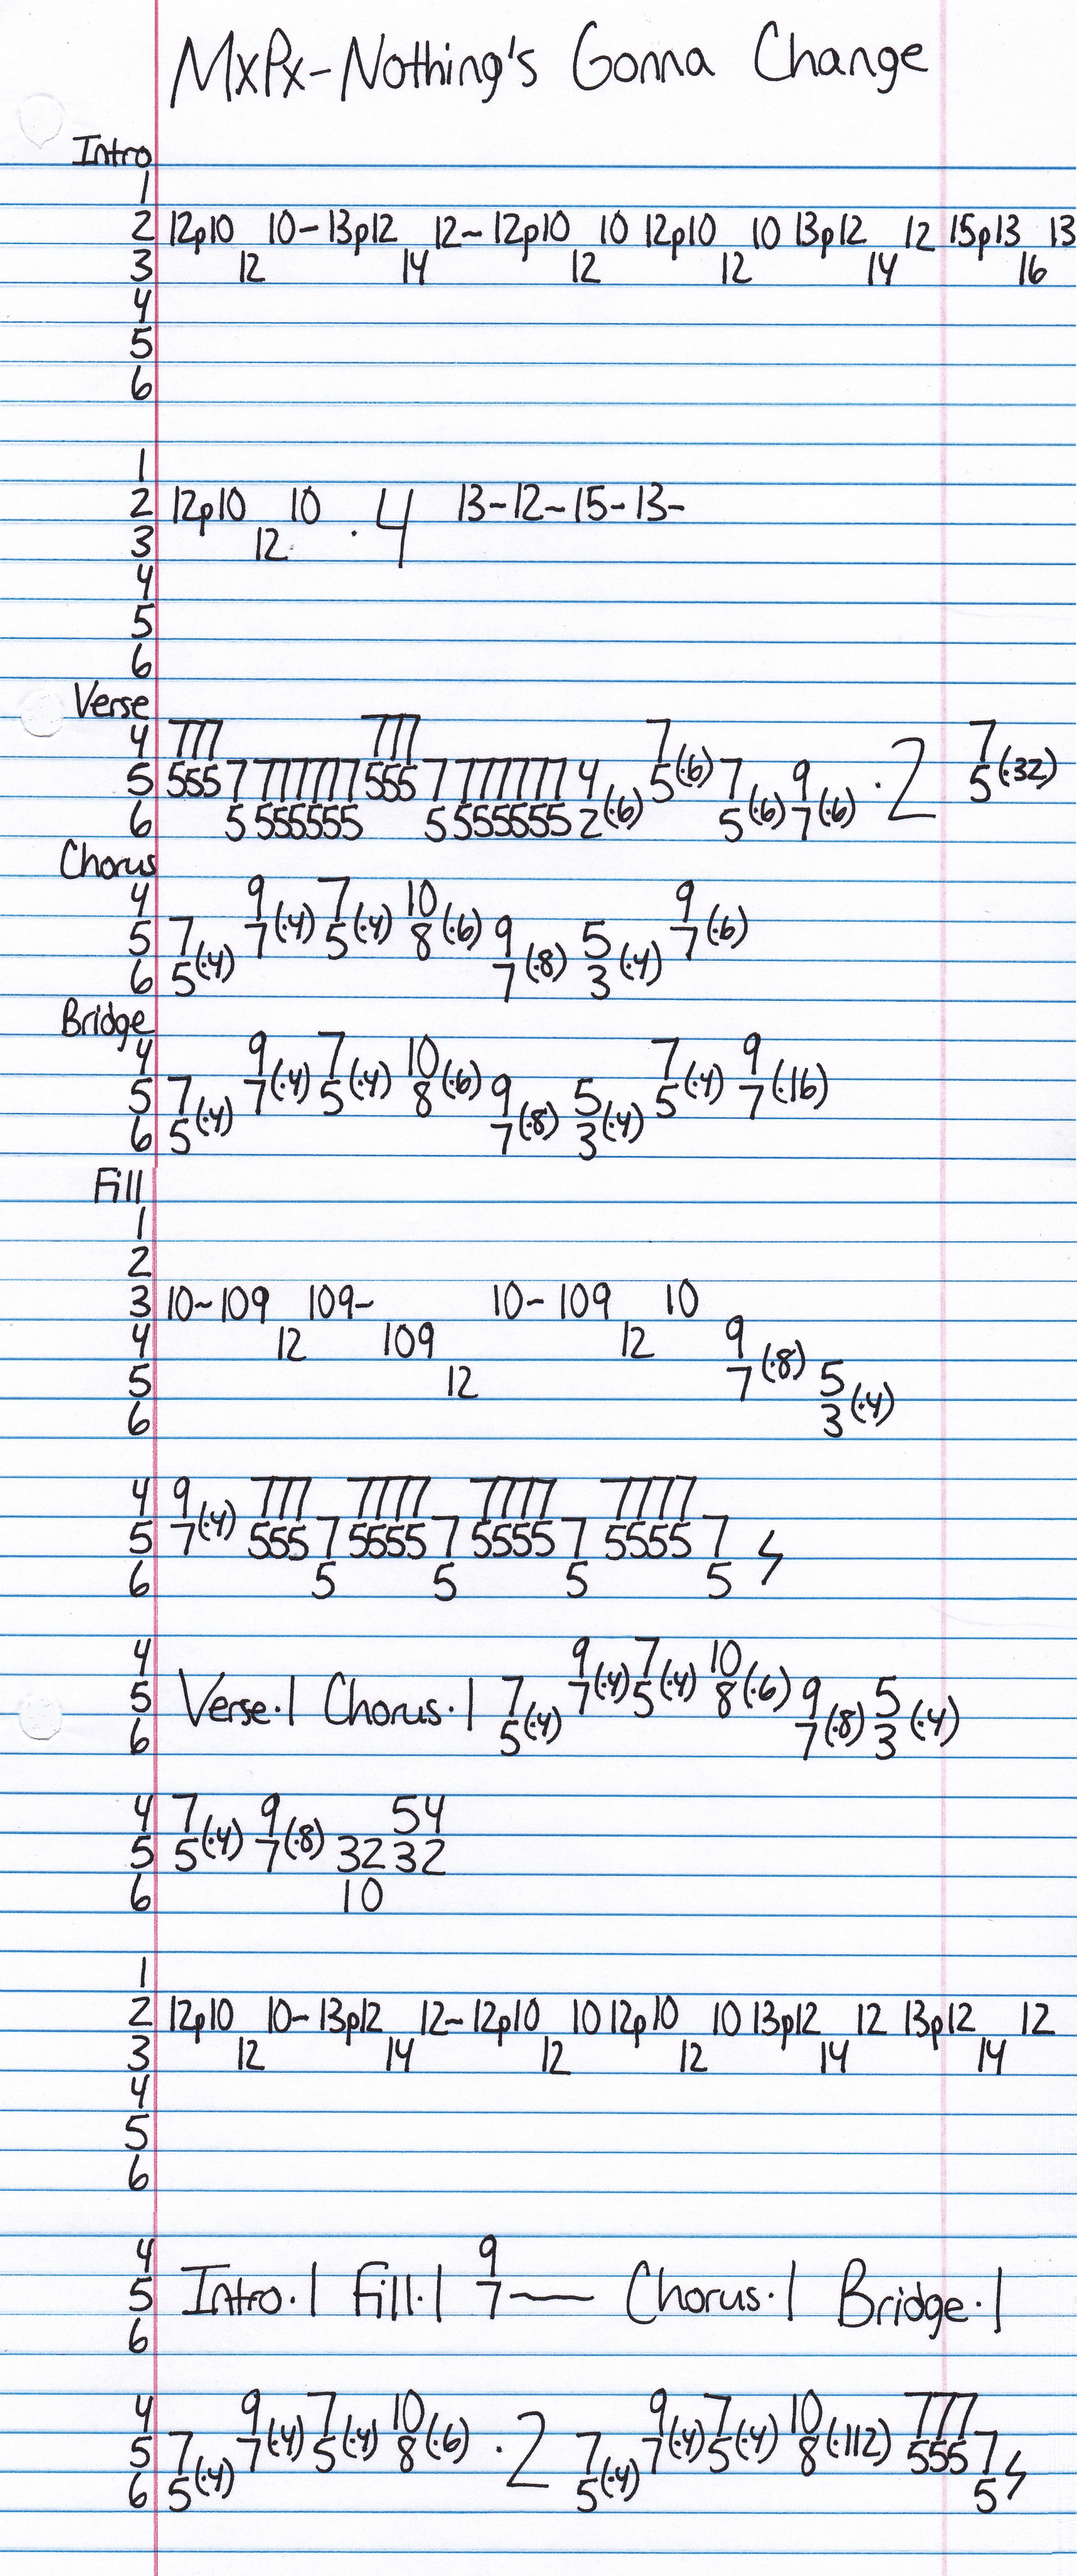 MxPx-Nothing's Gonna Change
Intro
1
2 12p10 10-13p12 12~12p10 10 12p10 10 13p12 12 15p13 13
3 12 14 12 12 14 16
4
5
6
1
2 12p10 10 .4 13-12~15-13-
3 12
4
5
6
Verse
4 777 777 7 7
5 5557777777555777777774 5(.6) 7 9 .2 5(.32)
6 5555555 5555555 2(.6) 5(.6) 7(.6)
Chorus
4 9 7 10 9
5 7 7(.4) 5(.4) 8(.6) 9 5 7(.6)
6 5(.4) 7(.8) 3(.4)
Bridge
4 9 7 10 7 9
5 7 7(.4) 5(.4) 8(.6) 9 5 5(.4) 7(.16)
6 5(.4) 7(.8) 3(.4)
Fill
1
2
3 10~109 109~ 10-109 10
4 12 109 12 9
5 12 7(.8) 5
6 3(.4)
4 9 777 7777 7777 7777
5 7(.4) 555 7 5555 7 5555 7 5555 7
6 5 5 5 5
4 9 7 10
5 Verse.1 Chorus.1 7 7(.4) 5(.4) 8(.6) 9 5
6 5(.4) 7(.8) 3(.4)
4 7 9 54
5 5(.4) 7(.8) 32 32
6 10
1
2 12p10 10-13p12 12~12p10 10 12p10 10 13p12 12 13p12 12
3 12 14 12 12 14 14
4
5
6
4 9
5 Intro.1 Fill.1 7— Chorus.1 Bridge.1
6
4 9 7 10 9 7 10 777
5 7 7(.4) 5(.4) 8(.6) .2 7 7(.4) 5(.4) 8(.112) 555 7
6 5(.4) 5(.4) 5